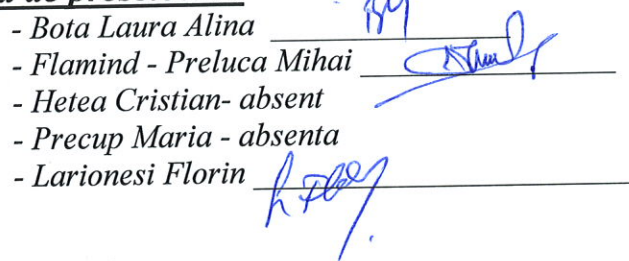 - Bota Laura Alina
- Flamind - Preluca Mihai
- Hetea Cristian- absent
- Precup Maria - absenta
- Larionesi Florin